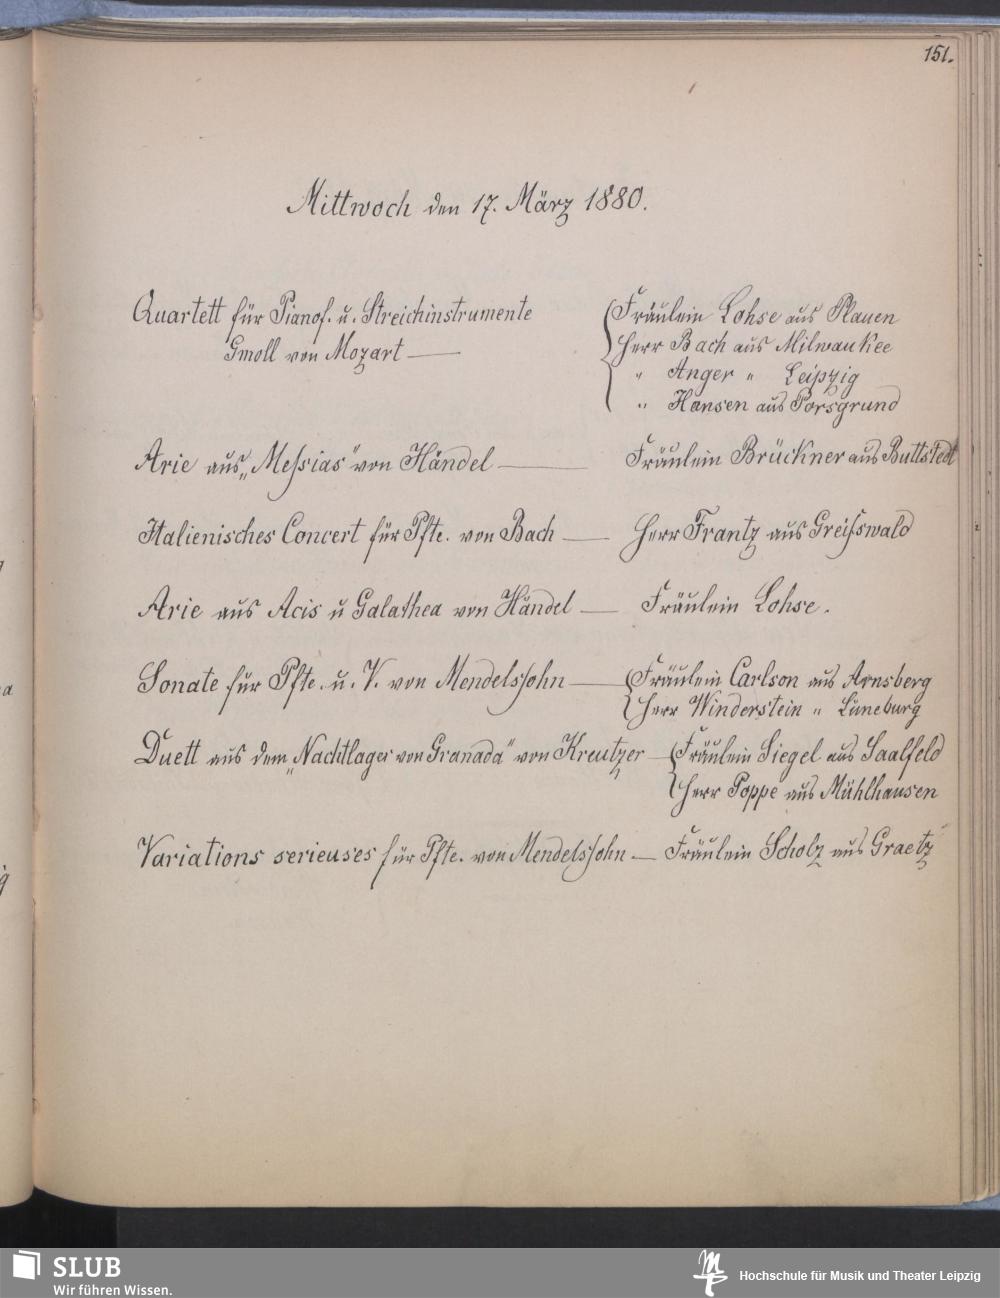 151.
Mittwoch den 17. März 1880.
Quartett für Pianof. u. Streichinstrumente
Gmoll von Mozart —
Fräulein Lohse aus Plauen
Herr Bach aus Milwaukee
" Anger " Leipzig
" Hansen aus Porsgrund
Arie aus „Meſsias" von Händel — Fräulein Brückner aus Buttstedt
Italienisches Concert für Pfte. von Bach — Herr Frantz aus Greifswald
Arie aus Acis u Galathea von Händel — Fräulein Lohse.
Sonate für Pfte. u. V. von Mendelsſohn — Fräulein Carlson aus Arnsberg
Herr Winderstein " Lüneburg
Duett aus dem „Nachtlager von Granada" von Kreutzer — Fräulein Siegel aus Saalfeld
Herr Poppe aus Mühlhausen
Variations serieuses für Pfte. von Mendelsſohn — Fräulein Scholz aus Graetz
SLUB
Wir führen Wissen.
Hochschule für Musik und Theater Leipzig